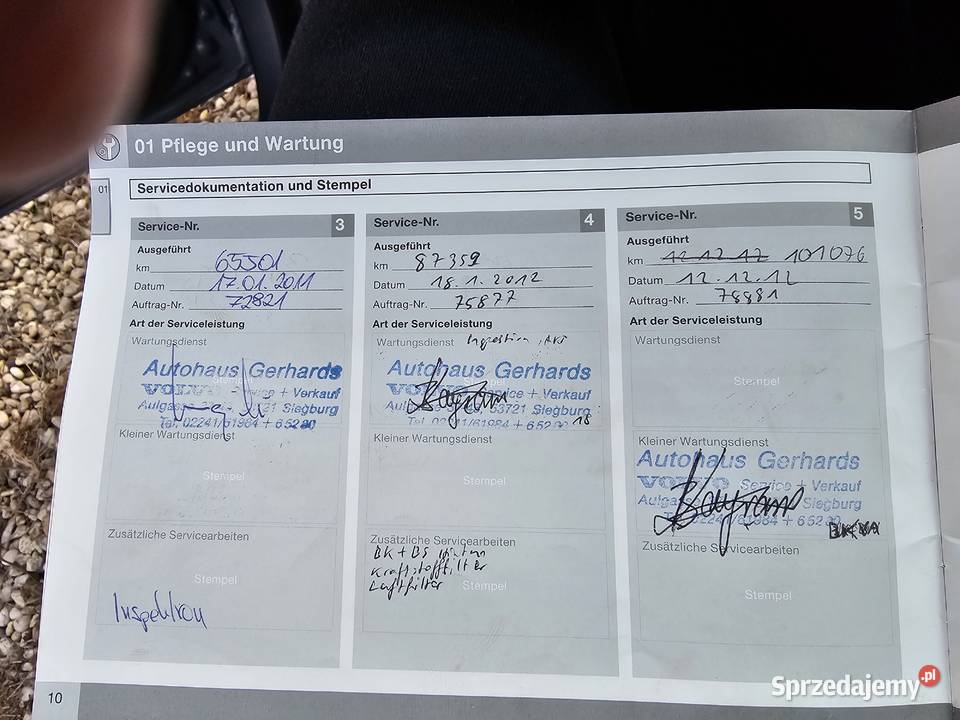 01 Pflege und Wartung
01
Servicedokumentation und Stempel
Service-Nr. 3
Ausgeführt
km 65501
Datum 17.01.2011
Auftrag-Nr. 72821
Art der Serviceleistung
Wartungsdienst
Autohaus Gerhards
VOLVO Service + Verkauf
Siegburg
Tel. 02241/61984 + 65280
Kleiner Wartungsdienst
Stempel
Zusätzliche Servicearbeiten
Stempel
Inspektion
Service-Nr. 4
Ausgeführt
km 87359
Datum 18.1.2012
Auftrag-Nr. 75877
Art der Serviceleistung
Wartungsdienst
Autohaus Gerhards
VOLVO Service + Verkauf
53721 Siegburg
Tel. 02241/61984 + 65280
Kleiner Wartungsdienst
Stempel
Zusätzliche Servicearbeiten
BK + BS
Kraftstofffilter
Luftfilter
Stempel
Service-Nr. 5
Ausgeführt
km 12.12.12 101076
Datum 12.12.12
Auftrag-Nr. 78881
Art der Serviceleistung
Wartungsdienst
Stempel
Kleiner Wartungsdienst
Autohaus Gerhards
VOLVO Service + Verkauf
Siegburg
02241/61984 + 65280
Zusätzliche Servicearbeiten
Stempel
10
Sprzedajemy.pl